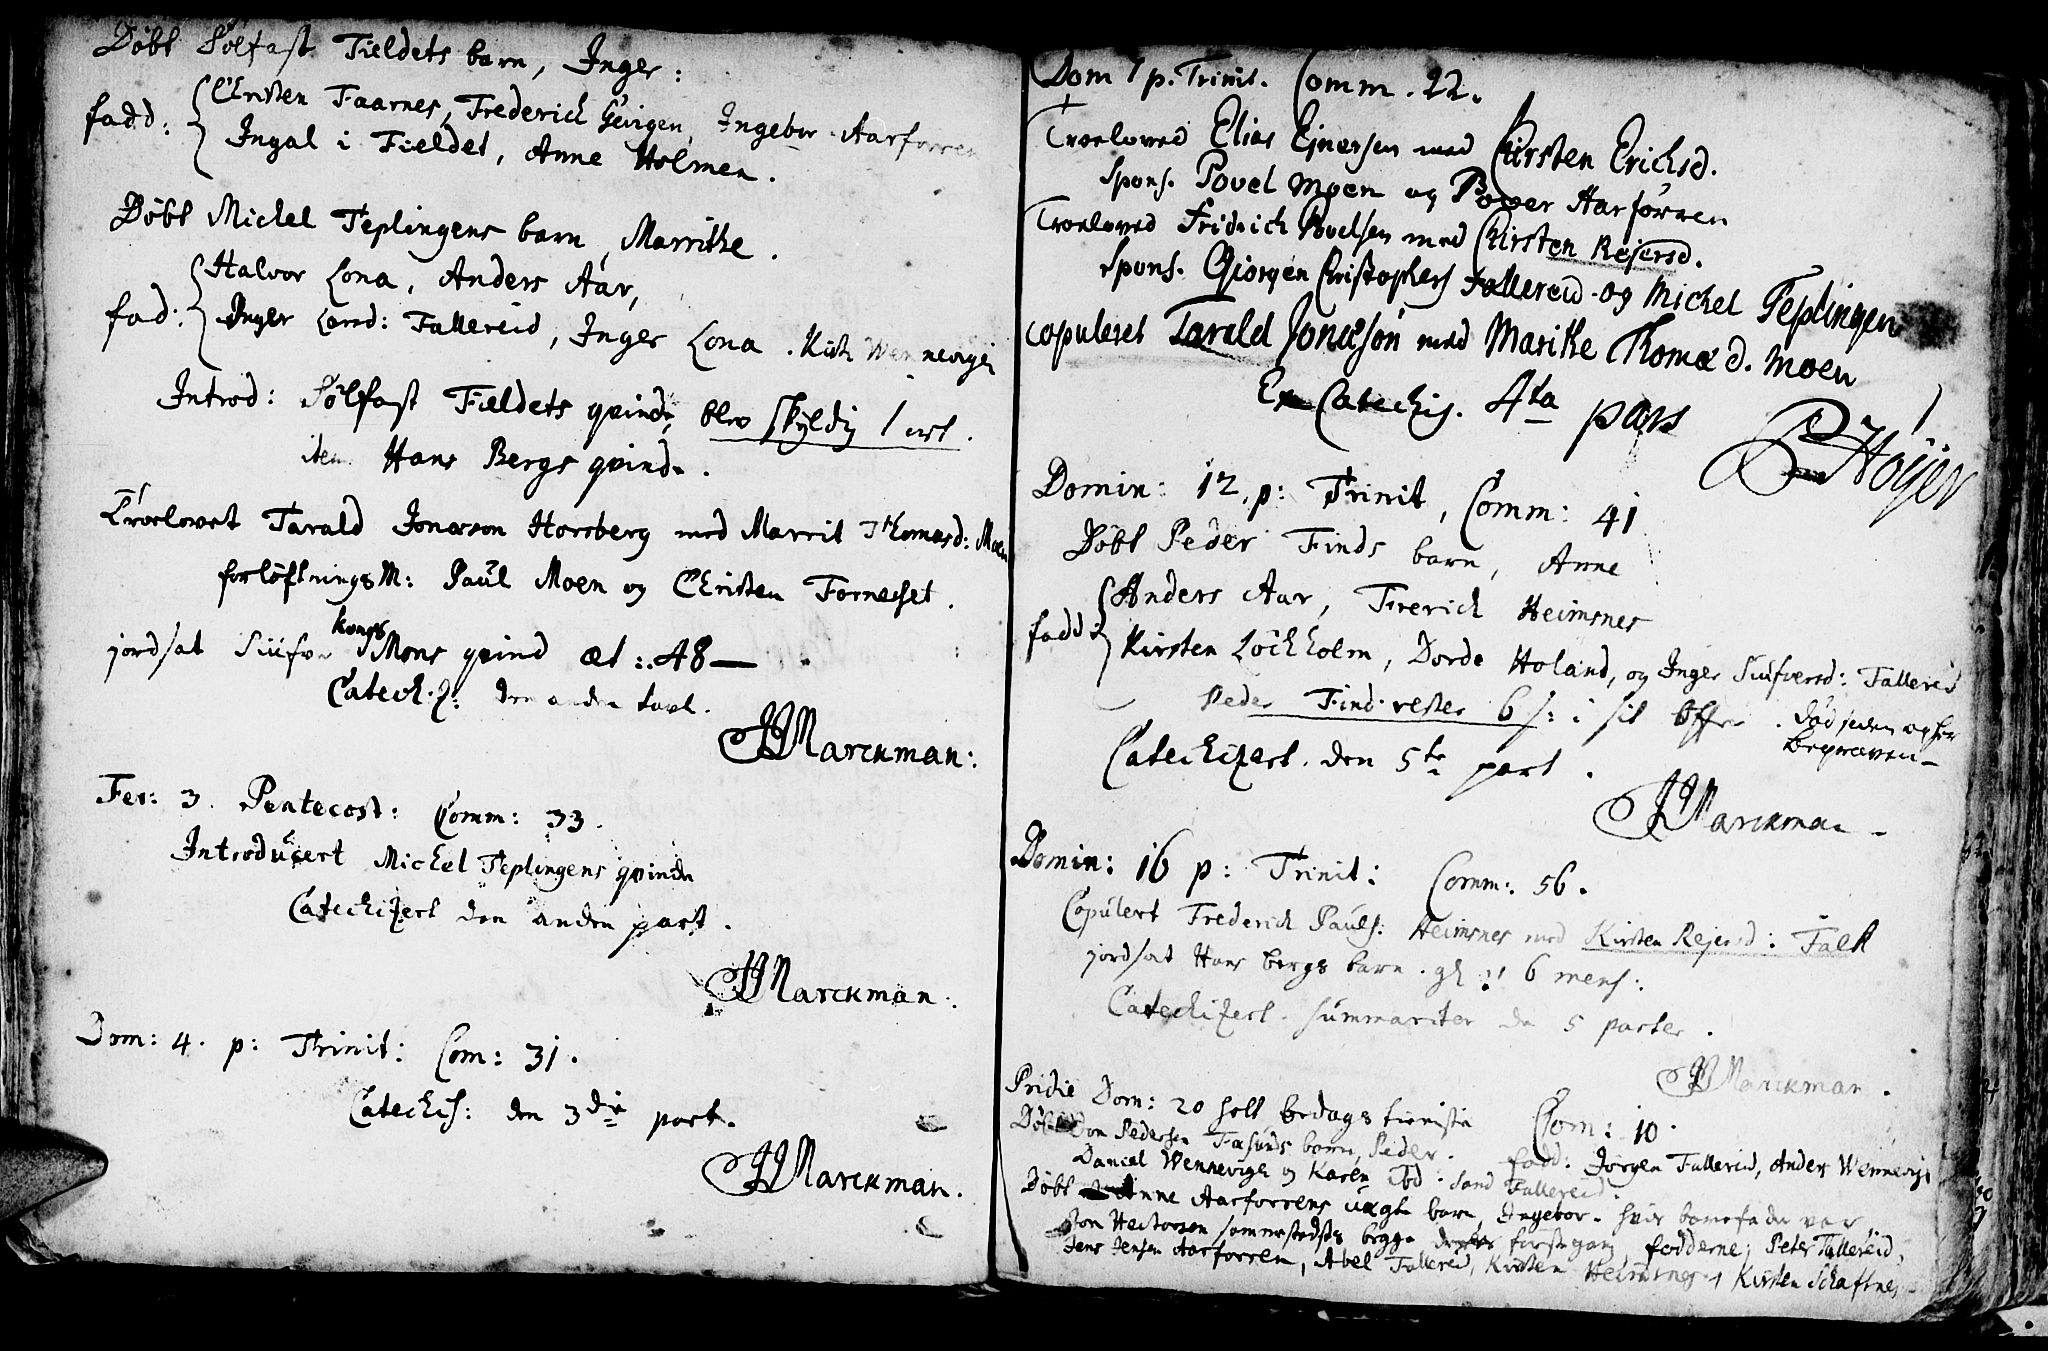 Døbt Sølfast Fieldets barn, Inger:
fadd: Christen Faarnes, Frederich Gevigen, Ingebor Aarforren
Ingal i Fieldet, Anne Holmen.
Døbt Michel Teplingens barn, Marrithe.
fad: Halvor Lona, Anders Aar,
Inger Larsd: Fallereid, Inger Lona. Kirst Wennevigen
Introd: Sølfast Fieldets qvinde, blev skÿldig 1 ort.
item Hans Bergs qvinde.
Troelovet Tarald Jonasson Horsberg med Marrit Thomasd: Moen
forløftningsM: Paul Moen og Christen Fornesset.
jordsat Siufve kongs Mons qvind æt: 48 —
Catechiz: den anden part.
JJMarckman:
Fer: 3. Pentecost: Comm: 33.
Introducert Michel Teplingens qvinde
Catechizert den anden part.
JJMarckman:
Dom: 4. p: Trinit: Com: 31.
Catechis: den 3die part.
JJMarckman.
Dom 7 p. Trinit. Comm. 22.
Troeloved Elias Ejnersen med Chirsten Erichsd.
Spons. Povel Moen og Peder Aarforren
Troeloved Fridrich Povelsen med Chirsten Rejersd.
Spons. Giørgen Christophers Fallereid og Michel Teplingen
copuleret Tarald Jonæsøn med Marithe Thomæ d. Moen
Ex Catechis. 4ta pars
PHöÿer
Domin: 12. p: Trinit, Comm: 41
Døbt Peder Finds barn, Anne
fadd: Anders Aar, Frerich Heimsnes
Kirsten Löckholm, Dorde Holand, og Inger Siufversd: Fallereid
Peder Find rester 6 s: i sit offer. død siden og her
begraven —
Catechizert den 5te part.
JJMarckman.
Domin: 16 p: Trinit: Comm: 56.
Copulert Frederich Pauels: Heimsnes med Kirsten Rejersd: Falle
jordsat Hans bergs barn. gl 6 mens:
Catechizert summariter de 5 parter.
JJMarckman.
Pridie Dom: 20 holt bedags tieniste Com: 10.
Døbt Jon Pedersen barn, Peder. fadd: Jørgen Fallereid, Anders Wennevigen
Daniel Wennevigen og Karen Ibd: Fallereid.
Døbt Anne Aarforrens uægte barn, Ingebor. hvis barnefader var
Jon begge første gang, fadderne; Peter Fallereid,
Jens Jensen Aarforren, Abel Fallereid, Kirsten Heimsnes, Kirsten Schaftnes